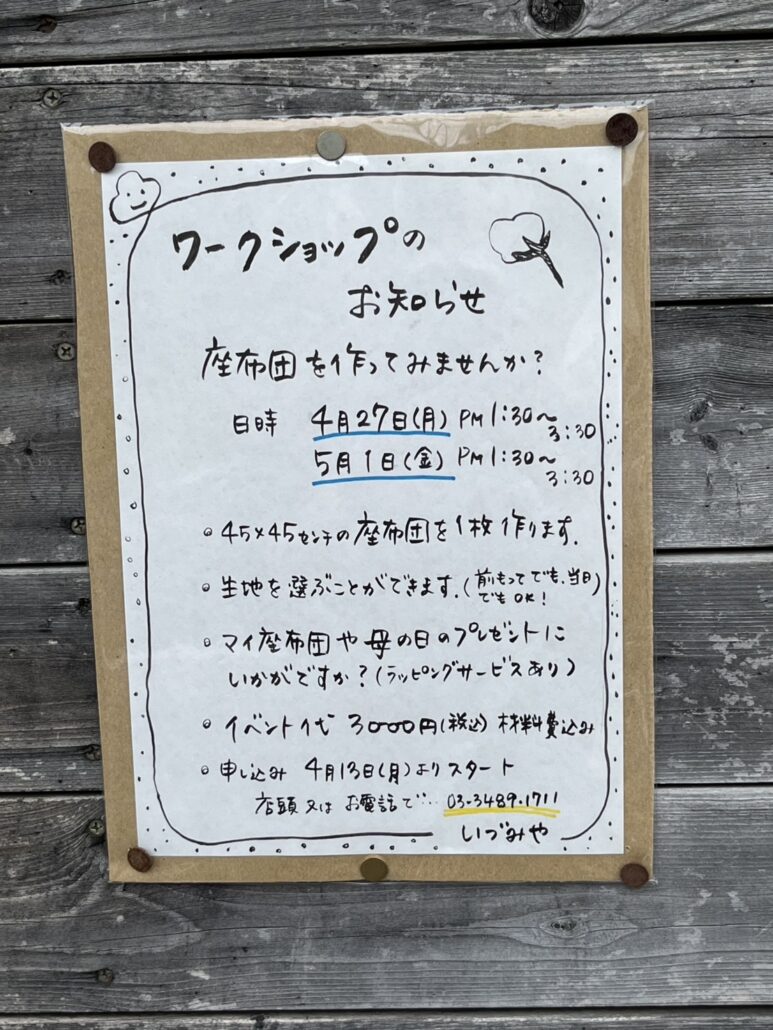 ワークショップの
お知らせ
座布団を作ってみませんか?
日時 4月27日(月) PM 1:30〜3:30
5月1日(金) PM 1:30〜3:30
。45×45センチの座布団を1枚作ります。
。生地を選ぶことができます。(前もってでも、当日でもOK!)
。マイ座布団や母の日のプレゼントに
いかがですか?(ラッピングサービスあり)
。イベント代 3000円(税込) 材料費込み
。申し込み 4月13日(月)よりスタート
店頭又はお電話で… 03-3489-1711
いづみや